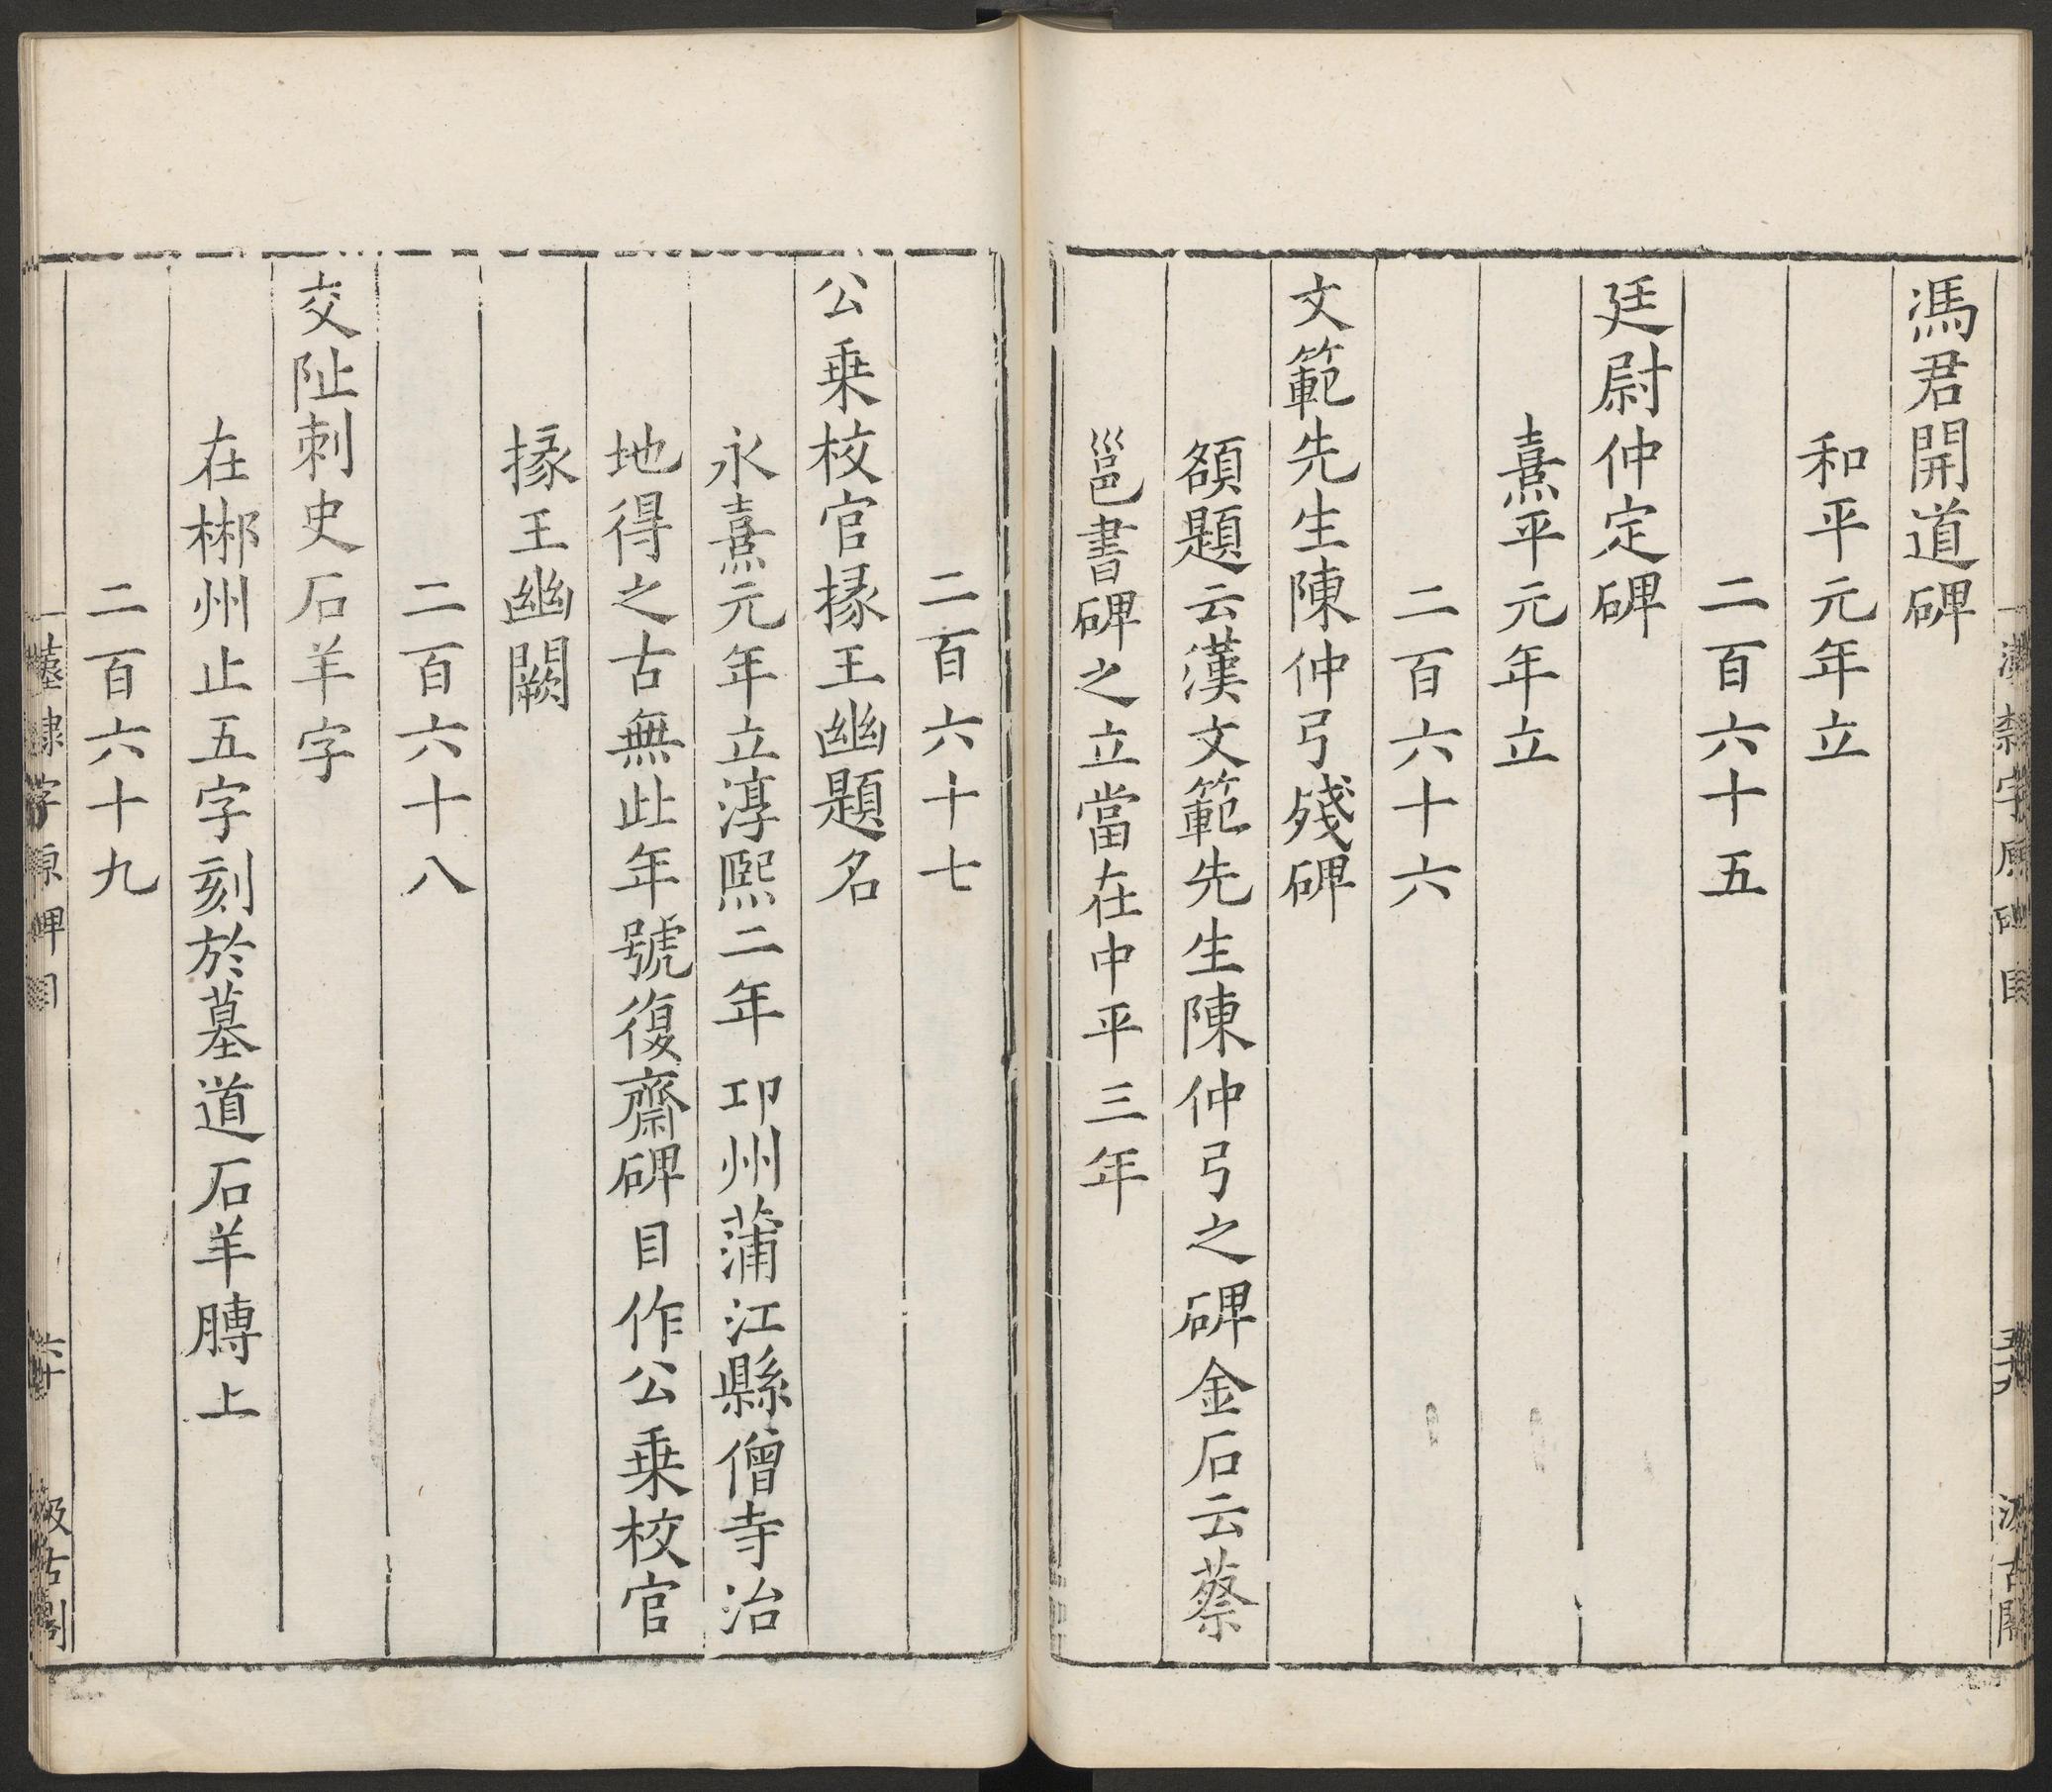 馮君開道碑
和平元年立
二百六十五
廷尉仲定碑
熹平元年立
二百六十六
文範先生陳仲弓殘碑
額題云漢文範先生陳仲弓之碑金石云蔡
邕書碑之立當在中平三年
漢隸字原碑目
五十九
汲古閣
二百六十七
公乗校官掾王幽題名
永熹元年立淳熙二年邛州蒲江縣僧寺治
地得之古無此年號復齋碑目作公乗校官
掾王幽闕
二百六十八
交阯刺史石羊字
在郴州止五字刻於墓道石羊膞上
二百六十九
隸字原碑目
六十
汲古閣